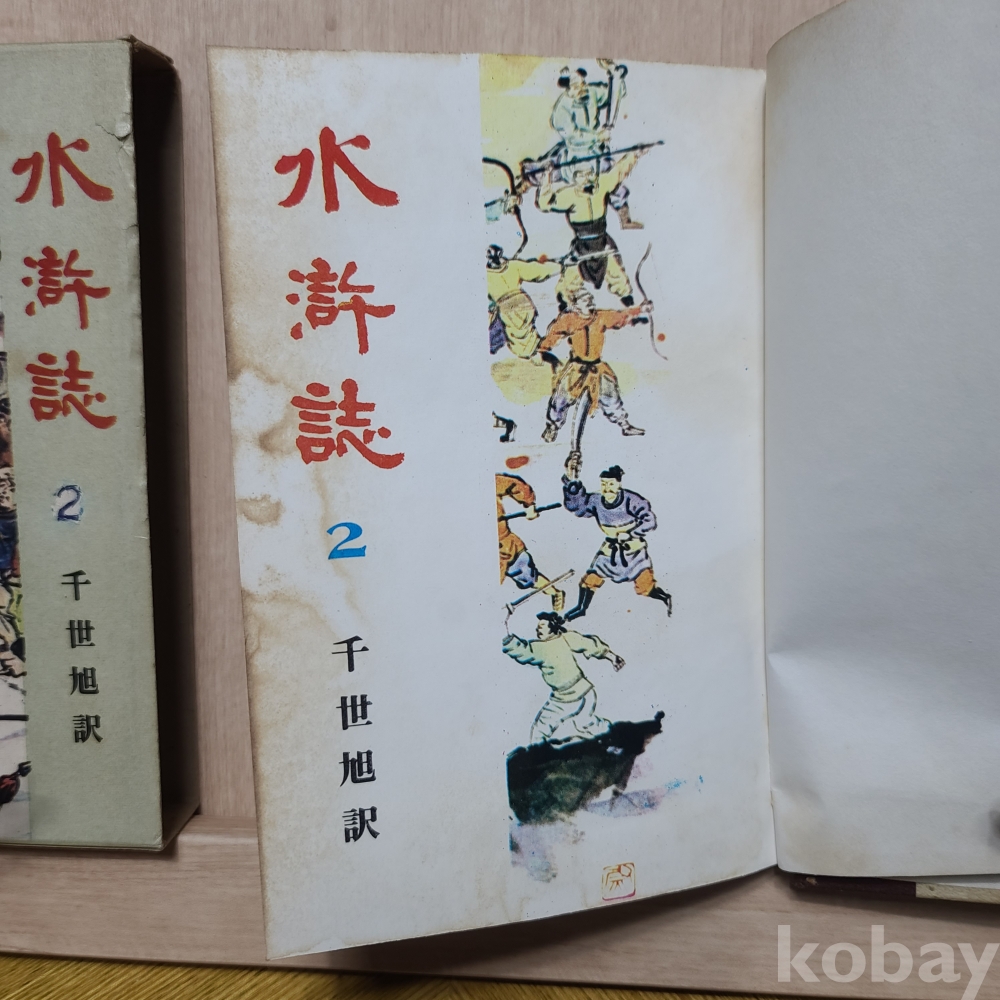 水滸誌
2
千世旭訳
水滸誌
2
千世旭訳
kobay